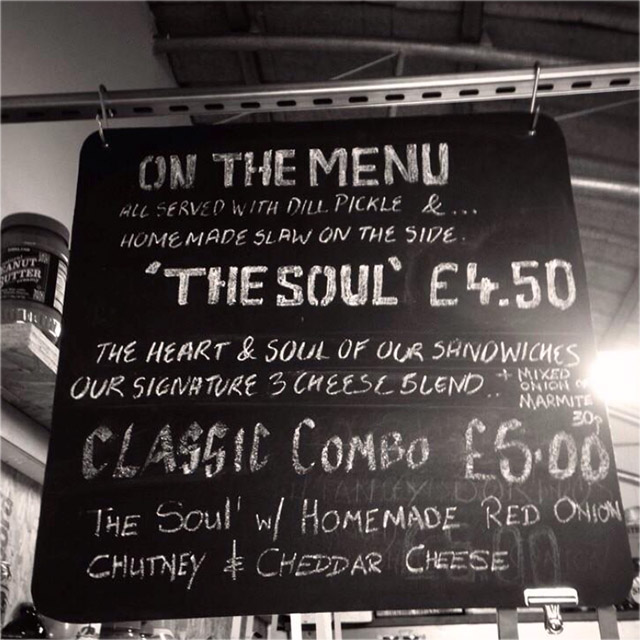 ON THE MENU
ALL SERVED WITH DILL PICKLE & ...
HOMEMADE SLAW ON THE SIDE.
'THE SOUL' £4.50
THE HEART & SOUL OF OUR SANDWICHES
OUR SIGNATURE 3 CHEESE BLEND..
+ MIXED
ONION OR
MARMITE
30p
CLASSIC COMBO £5.00
'THE SOUL' W/ HOMEMADE RED ONION
CHUTNEY & CHEDDAR CHEESE
PEANUT
BUTTER